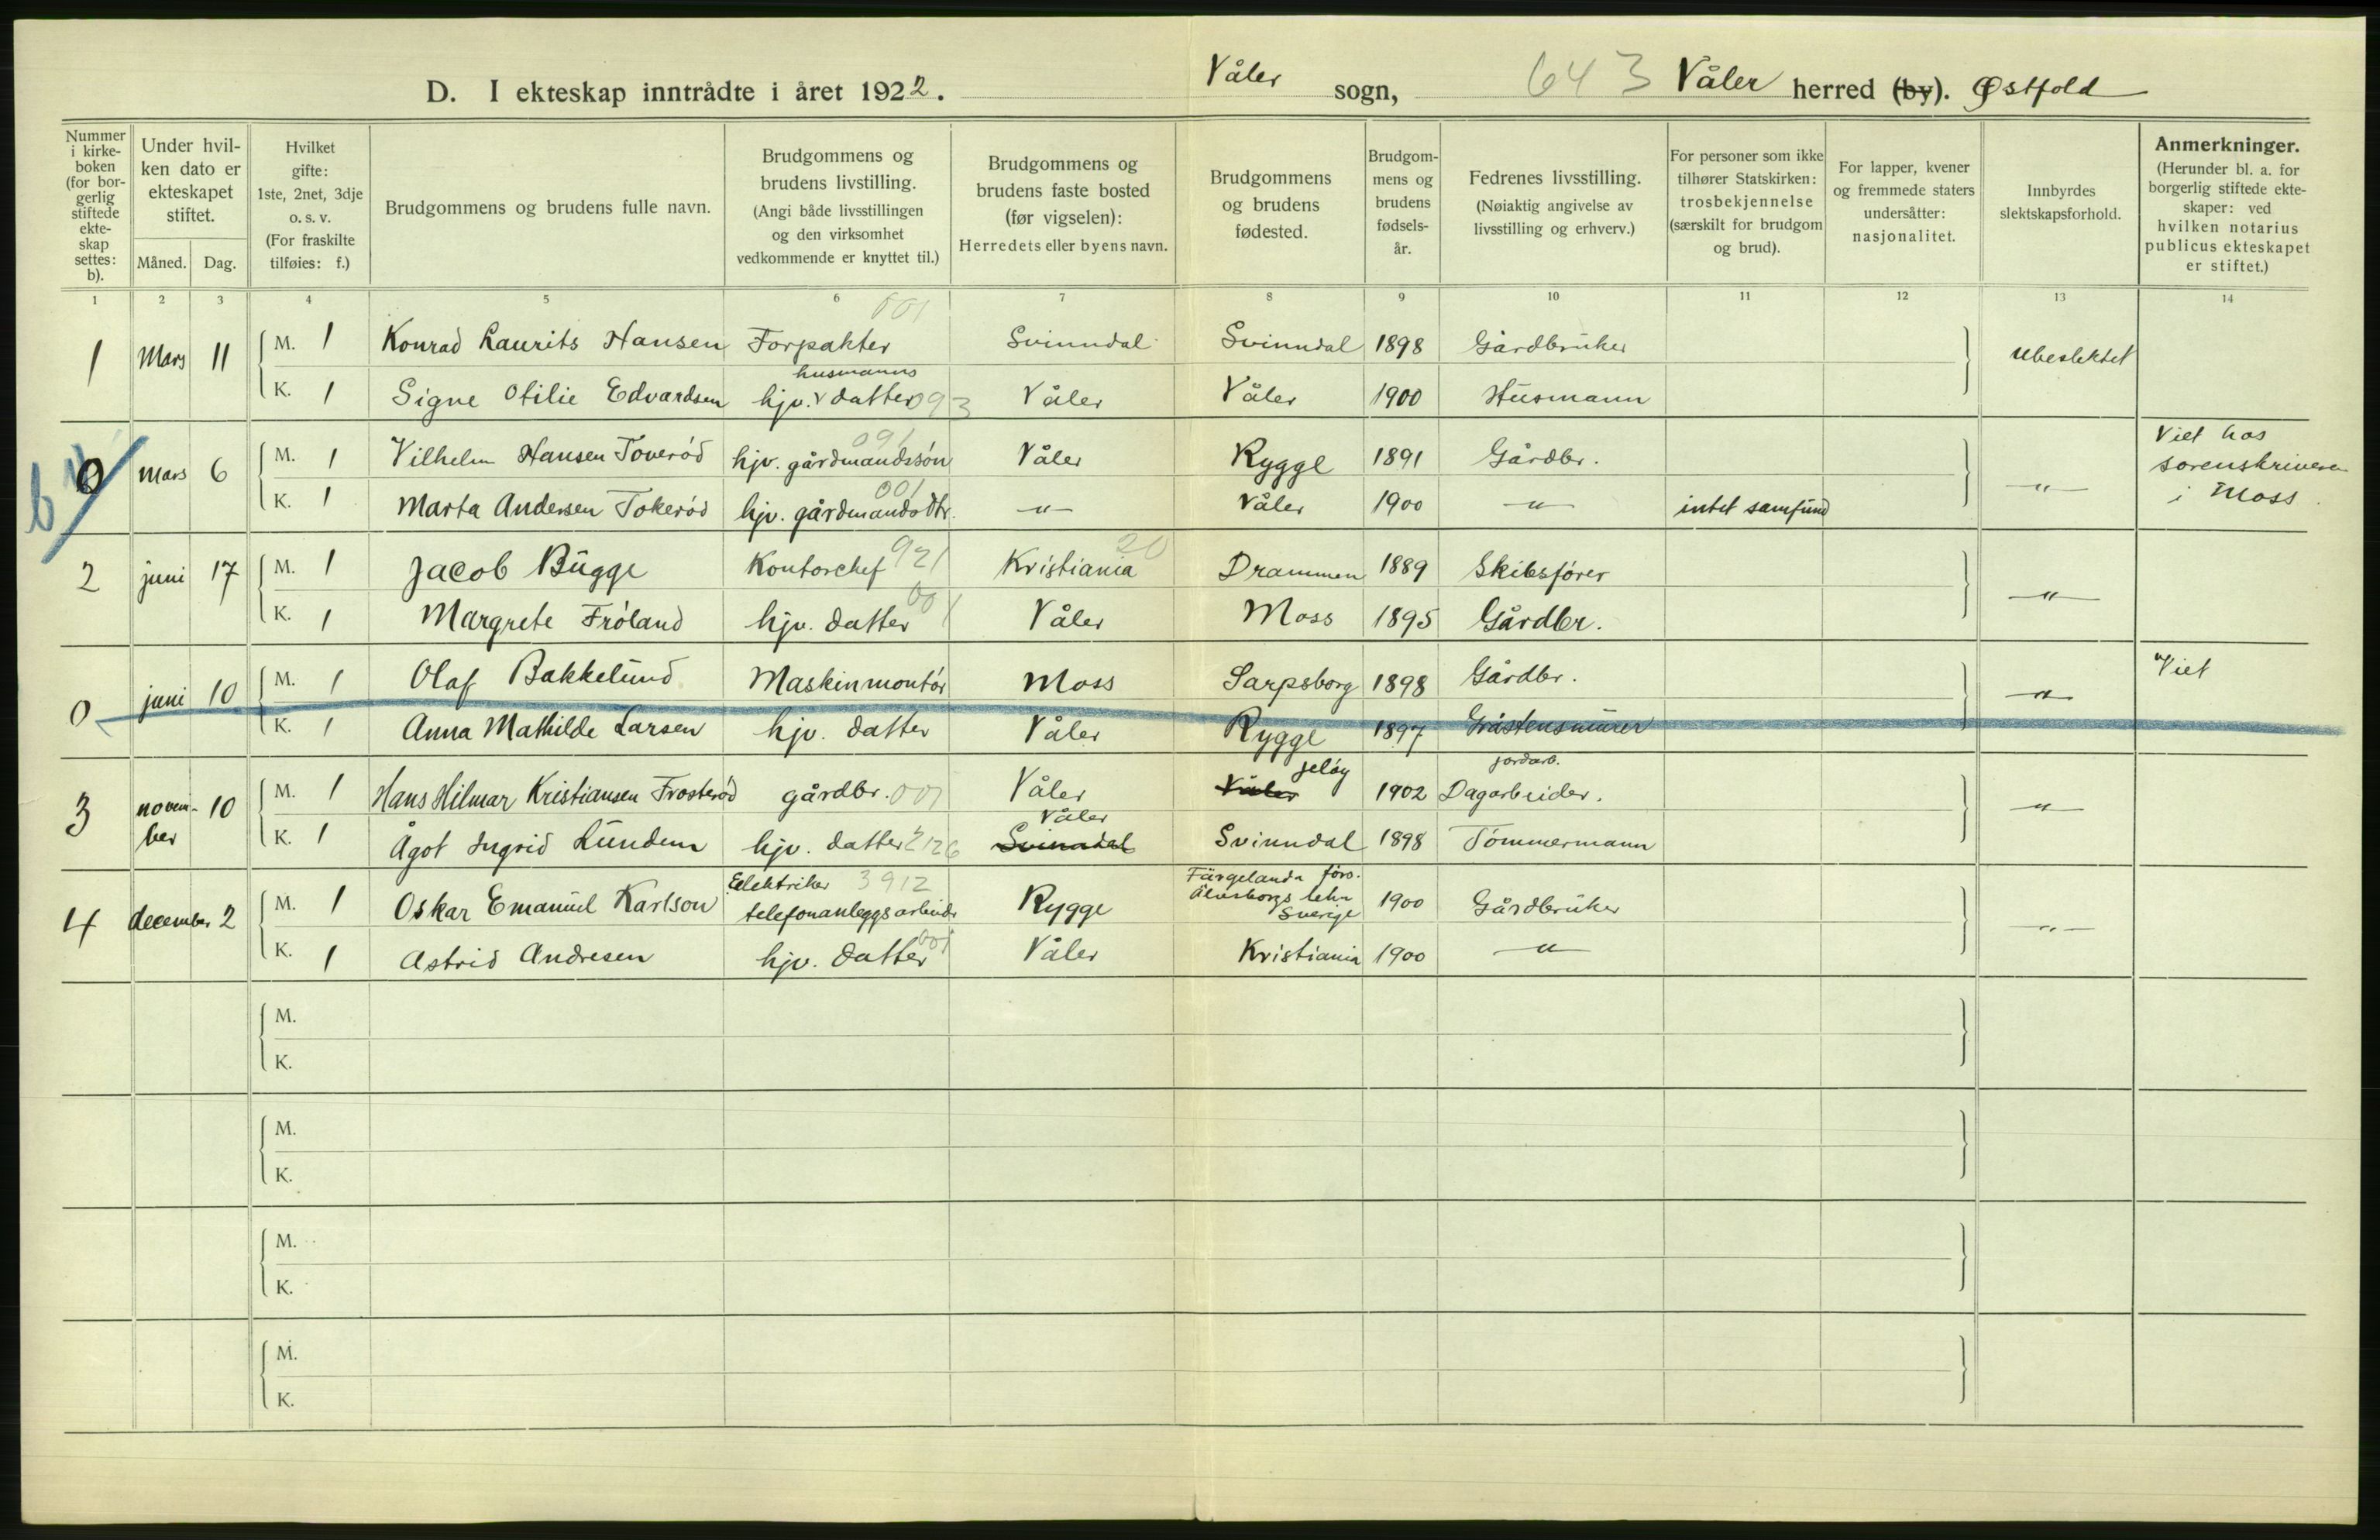 D. I ekteskap inntrådte i året 1922. Våler sogn, 643 Våler herred (by). Østfold
Nummer i kirkeboken (for borgerlig stiftede ekteskap settes: b).
Under hvilken dato er ekteskapet stiftet.
Måned. Dag.
Hvilket gifte: 1ste, 2net, 3dje o. s. v. (For fraskilte tilføies: f.)
Brudgommens og brudens fulle navn.
Brudgommens og brudens livstilling. (Angi både livsstillingen og den virksomhet vedkommende er knyttet til.)
Brudgommens og brudens faste bosted (før vigselen): Herredets eller byens navn.
Brudgommens og brudens fødested.
Brudgommens og brudens fødselsår.
Fedrenes livsstilling. (Nøiaktig angivelse av livsstilling og erhverv.)
For personer som ikke tilhører Statskirken: trosbekjennelse (særskilt for brudgom og brud).
For lapper, kvener og fremmede staters undersåtter: nasjonalitet.
Innbyrdes slektskapsforhold.
Anmerkninger. (Herunder bl. a. for borgerlig stiftede ekteskaper: ved hvilken notarius publicus ekteskapet er stiftet.)
1 2 3 4 5 6 7 8 9 10 11 12 13 14
1 Mars 11 M. 1 Konrad Laurits Hansen Forpakter 001 Svinndal Svinndal 1898 Gårdbruker ubeslektet
K. 1 Signe Otilie Edvardsen hjv. husmanns datter 093 Våler Våler 1900 Husmann
b 0 mars 6 M. 1 Vilhelm Hansen Toverød hjv. gårdmandssøn 091 Våler Rygge 1891 Gårdbr. -"- Viet hos sorenskriveren i Moss.
K. 1 Marta Andersen Tokerød hjv. gårdmandsdtr. 001 -"- Våler 1900 -"- intet samfund
2 juni 17 M. 1 Jacob Bugge Kontorchef 921 Kristiania 20 Drammen 1889 Skibsfører -"-
K. 1 Margrete Frøland hjv. datter 001 Våler Moss 1895 Gårdbr.
0 juni 10 M. 1 Olaf Bakkelund Maskinmontør Moss Sarpsborg 1898 Gårdbr. -"- Viet
K. 1 Anna Mathilde Larsen hjv. datter Våler Rygge 1897 Gråstensmurer
3 november 10 M. 1 Hans Hilmar Kristiansen Frosterød gårdbr. 001 Våler Våler Jeløy 1902 jordarb. Dagarbeider. -"-
K. 1 Ågot Ingrid Lunden hjv. datter 2126 Våler Svinndal Svinndal 1898 Tømmermann
4 december 2 M. 1 Oskar Emanuel Karlson Elektriker 3912 telefonanleggsarbeider Rygge Färgelanda förs. Älvsborgs lehn Sverige 1900 Gårdbruker -"-
K. 1 Astrid Andresen hjv. datter 001 Våler Kristiania 1900 -"-
M.
K.
M.
K.
M.
K.
M.
K.